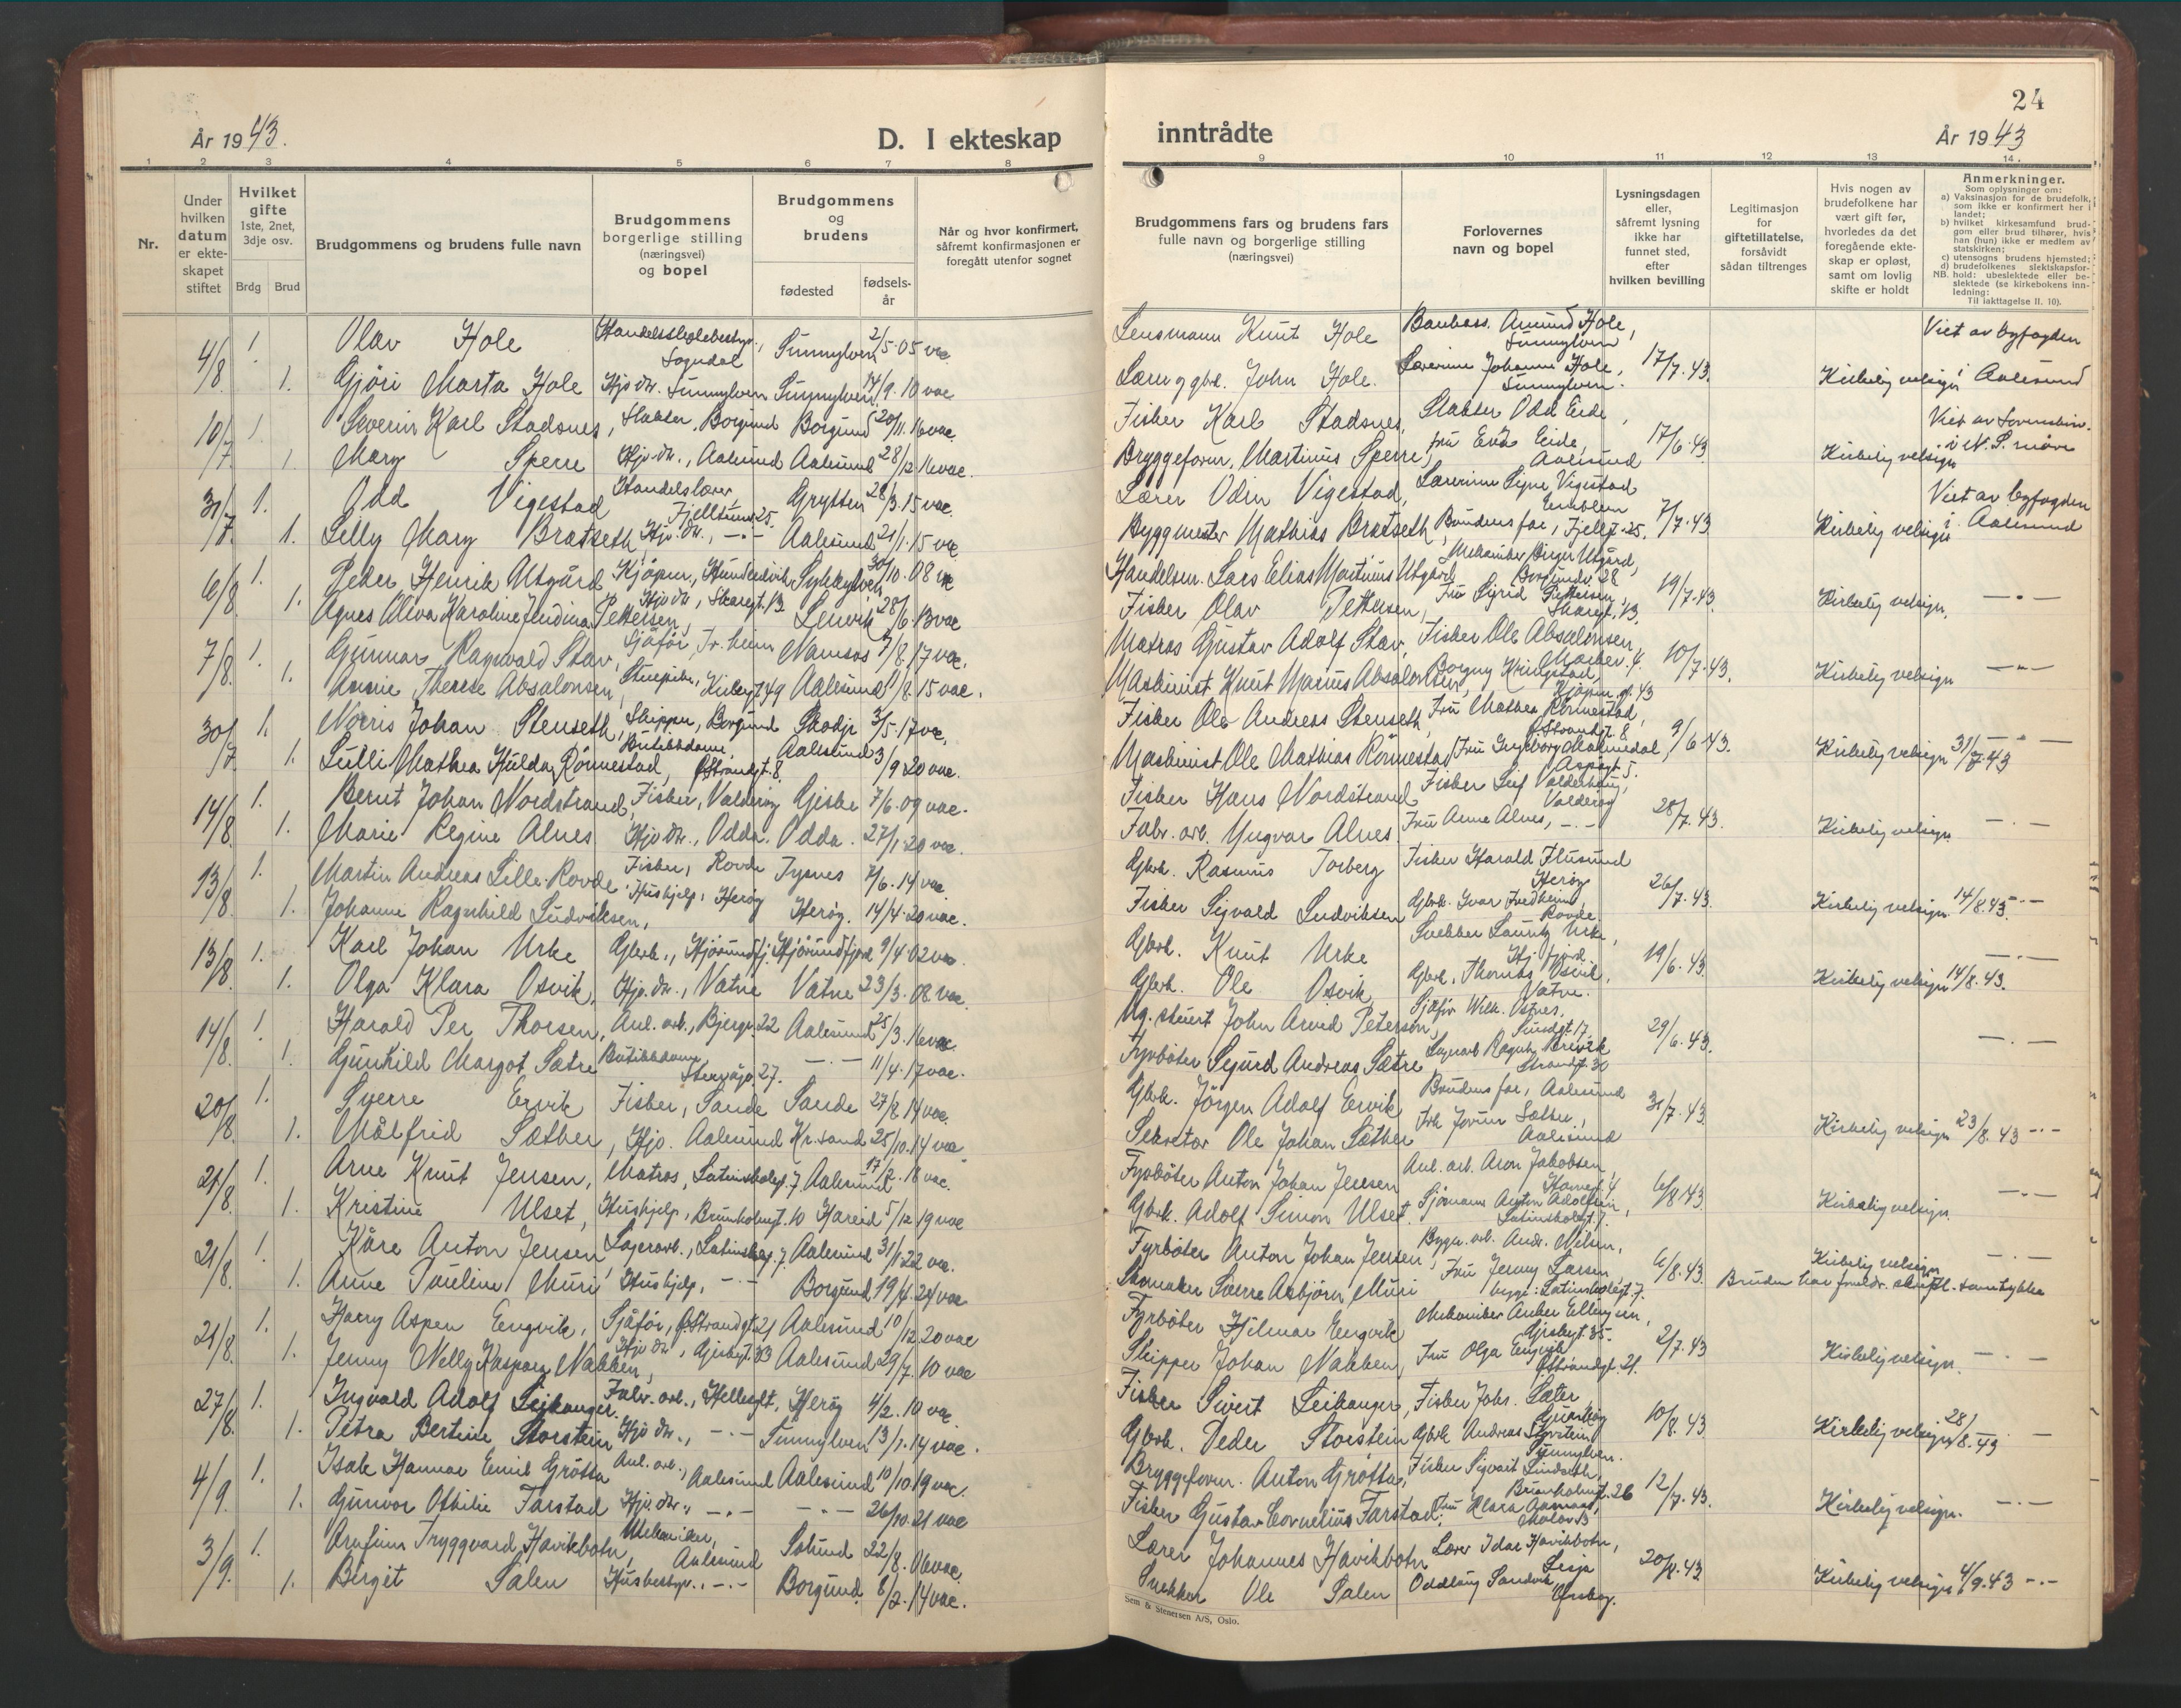 År 1943.
D. I ekteskap
1 2 3 4 5 6 7 8
Nr.
Under hvilken datum er ekteskapet stiftet
Hvilket gifte 1ste, 2net, 3dje osv.
Brdg Brud
Brudgommens og brudens fulle navn
Brudgommens borgerlige stilling (næringsvei) og bopel
Brudgommens og brudens
fødested
fødselsår
Når og hvor konfirmert, såfremt konfirmasjonen er foregått utenfor sognet
4/8 1. Olav Hole Sogndal Sunnylven 2/5.05 vac.
1. Gjöri Marta Hole Hjv. dtr. Sunnylven Sunnylven 14/9.10 vac
10/7 1. Severin Karl Stadsnes, Slakter, Borgund Borgund 20/11.16 vac.
1. Mary Sperre Hjv. dtr., Aalesund Aalesund 28/12 16 vac.
31/7. 1. Odd Vigestad Handelslærer, Fjelltun 25. Grytten 28/3.15 vac.
1. Lilly Mary Bratseth, Hjv. dtr., -"- Aalesund 21/1.15 vac
6/8. 1. Peder Henrik Utgård Kjøpm., Hundeidvik Sykkylven 30/10.08 vac
1. Agnes Oliva Karoline Jendina Pettersen, Hjv dtr, Skaregt. 13 Lenvik 28/6.13 vac
7/8. 1. Gunnar Ragnvald Stav, Sjåfør, Tr.heim Namsos 7/8.17 vac.
1. Annie Therese Absalonsen, Stuepike, Kirkegt 49 Aalesund 11/8.15 vac.
30/7 1. Norris Johan Stenseth, Skipper, Borgund Skodje 3/5.17 vac.
1. Lulli Mathea Hulda Rönnestad, Butikkdame, Ö Strandgt. 8. Aalesund 3/9 20 vac.
14/8. 1. Bernt Johan Nordstrand, Fisker, Valderøy Giske 7/6.09 vac.
1. Marie Regine Alnes Hjv dtr., Odda. Odda. 27/1.20 vac.
13/8. 1. Martin Andreas Lille-Rovde Fisker, Rovde Tysnes 7/6.14 vac.
1. Johanne Ragnhild Ludviksen, Hushjelp, Herøy Herøy. 14/4.20 vac.
13/8. 1. Karl Johan Urke Gbrk., Hjörundfj. Hjörundfjord 9/4.02 vac.
1. Olga Klara Osvik, Hjv. dtr., Vatne Vatne 23/3.08 vac.
14/8. 1. Harald Per Thorsen, Anl. arb., Bjergv. 22 Aalesund 25/3.16 vac.
1. Gunhild Margot Sætre Butikkdame, Stenvågv. 27. -"- 11/4.17 vac.
20/8. 1. Sverre Ervik Fisker, Sande Sande 27/8 14 vac.
1. Målfrid Sæther, Hjv. Aalesund Kr.sand 25/10.14 vac
21/8. 1. Arne Knut Jensen, Matros, Latinskolegt. 7 Aalesund 17/2.18 vac.
1. Kristine Ulset, Hushjelp, Brunholmgt. 10 Hareid 5/12 19 vac
21/8. 1. Kåre Anton Jensen, Lagerarb., Latinskolegt. 7 Aalesund 31/1 22 vac.
1. Anne Pauline Muri Hushjelp, -"- Borgund 19/4.24 vac
21/8. 1. Harry Aspen Engvik, Sjåför, Ö Strandgt 21 Aalesund 10/12 20 vac
1. Jenny Nelly Kaspara Nakken, Hjv dtr, Giskegt. 33 Aalesund 29/7.10 vac
27/8. 1. Ingvald Adolf Leikanger. Fabr. arb., Hellesylt, Herøy 4/2.10 vac.
1. Petra Bertine Storstein Hjv dtr., -"- Sunnylven 13/1.14 vac.
4/9. 1. Isak Hannar Emil Grötta Anl. arb., Aalesund Aalesund 10/10 19 vac.
1. Gunvor Othilie Tarstad Hjv. dtr., -"- -"- 26/10.21 vac
3/9. 1. Arnfinn Tryggvard Havikbotn, Mekaniker, Aalesund Solund 22/8.06 vac.
1. Birgit Salen Husbestyr., -"- Borgund 8/2.14 vac.
24
inntrådte
År 1943
9 10 11 12 13 14.
Brudgommens fars og brudens fars fulle navn og borgerlige stilling (næringsvei)
Forlovernes navn og bopel
Lysningsdagen eller, såfremt lysning ikke har funnet sted, efter hvilken bevilling
Legitimasjon for giftetillatelse, forsåvidt sådan tiltrenges
Hvis nogen av brudefolkene har vært gift før, hvorledes da det foregående ekteskap er opløst, samt om lovlig skifte er holdt
Anmerkninger.
Som oplysninger om:
a) Vaksinasjon for de brudefolk, som ikke er konfirmert her i landet;
b) hvilket kirkesamfund brudgom eller brud tilhører, hvis han (hun) ikke er medlem av statskirken;
c) utensogns brudens hjemsted;
d) brudefolkenes slektskapsforhold: ubeslektede eller beslektede (se kirkebokens innledning:
NB.
Til iakttagelse II. 10).
Lensmann Knut Hole Amund Hole, Sunnylven Viet av byfogden
Lærer og gbrk. John Hole. Lærerinne Johanne Hole, Sunnylven. 17/7.43. Kirkelig velsign. i Aalesund
Fisker Karl Stadsnes, Slakter Odd Eide,
Bryggeform. Martinus Sperre, fru Eva Eide, Aalesund 17/6.43 Kirkelig velsign
Lærer Odin Vigestad, Lærerinne Signe Vigestad Emblem Viet av byfogden
Byggmester Mathias Bratseth, Brudens far, Fjellt. 25. 7/7.43 Kirkelig velsign i Aalesund
Handelsm. Lars Elias Martinus Utgård Mekaniker Birger Utgård, Borgundv. 28
Fisker Olav Pettersen, Fru Sigrid Pettersen, Skaregt. 13. 19/7.43. Kirkelig velsign. -"-
Matros Gustav Adolf Stav, Fisker Ole Absalonsen,
Maskinist Knut Marius Absalonsen, Borgny Kringstad, Kjøpm. gt. 43 10/7.43. Kirkelig velsign -"-
Fisker Ole Andreas Stenseth, Fru Mathea Rönnestad, Ö Strandgt. 8
Maskinist Ole Mathias Rönnestad Fru Ingeborg Malmedal, Aspegt 5. 9/6.43. Kirkelig velsign 31/7.43 -"-
Fisker Hans Nordstrand Fisker Leif Valderhaug, Valderøy
Fabr. arb. Yngvar Alnes. Fru Anne Alnes, -"- 28/7.43. Kirkelig velsign. -"-
Gbrk. Rasmus Torberg Fisker Harald Flusund Herøy
Fisker Sigvald Ludviksen Gbrk. Ivar Fredheim, Rovde. 26/7.43. Kirkelig velsign. 14/8.43. -"-
Gbrk. Knut Urke Snekker Lauritz Urke, Hj.fjord
Gbrk. Ole Osvik Gbrk. Thomas Osvik, Vatne. 19/6.43. Kirkelig velsign 14/8.43. -"-
Ug. stuert John Arvid Peterson, Sjåför Wilh. Ostnes,
Fyrbøter Sigurd Andreas Sætre Lagerarb Ragnv. Brevik Strandgt. 30 29/6.43. -"-
Gbrk. Jörgen Adolf Ervik Brudens far, Aalesund
Sekretær Ole Johan Sæther Frk Jorunn Sæther, Aalesund 31/7.43. Kirkelig velsign 23/8.43 -"-
Fyrbøter Anton Johan Jensen Anl. arb. Aron Jakobsen,
Gbrk. Adolf Simon Ulset. Sjömann Anton Adolfsen, Latinskolegt 7. 6/8 43. Kirkelig velsign. -"-
Fyrbøter Anton Johan Jensen, Bygn. arb. Andr. Nilsen,
Skomaker Sverre Asbjörn Muri Fru Jenny Larsen, begge: Latinskolegt. 7. 6/8.43. Kirkelig velsign. -"-
Fyrbøter Hilmar Engvik Mekaniker Anker Ellingsen, Giskegt. 35.
Skipper Johan Nakken, Fru Olga Engvik Ö Strandgt. 21. 2/7.43 Kirkelig velsign. -"-
Fisker Sivert Leikanger, Fisker Johs. Sæter
Gbrk. Peder Storstein Gbrk Andreas Storstein Sunnylven. 10/8.43 Kirkelig velsign 28/8.43 -"-
Bryggeform. Anton Grötta, Fisker Sigvart Lindseth, Brunholmgt. 26
Fisker Gustav Cornelius Tarstad, Fru Klara 12/7.43. Kirkelig velsign. -"-
Lærer Johannes Havikbotn Lærer Idar Havikbotn, Lesja
Snekker Ole Salen Oddlaug Sandvik, 20/8.43. Kirkelig velsign 4/9.43 -"-
Sem & Stenersen A/S, Oslo.